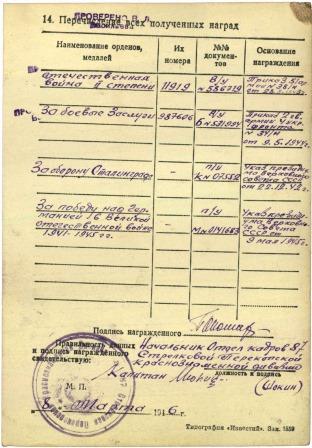 ПРОВЕРЕНО В. Д.
14. Перечисление всех полученных наград
Наименование орденов, медалей
Их номера
№№ документов
Основание награждения
Отечественная война II степени
11919
В/у
Приказ
За боевые Заслуги
987606
В/у
Приказ 2 гв. армии 4 укр. фронта
№ 34/н
от 9.5.1944г.
За оборону Сталинграда
п/у
Указ президиума верховного совета СССР
от 22.12.42г.
За победу над Германией в Великой отечественной войне 1941-1945 гг.
п/у
М № 0141663
Указ президиума верховного Совета СССР от
9 мая 1945г.
Подпись награжденного
Правильность данных и подпись награжденного свидетельствую:
Начальник Отдел кадров 87 Стрелковой Перекопской Краснознаменной дивизии
Капитан
должность и подпись
(Шокин)
М. П.
8 Марта 1946 г.
Типография «Известий». Зак. 1859